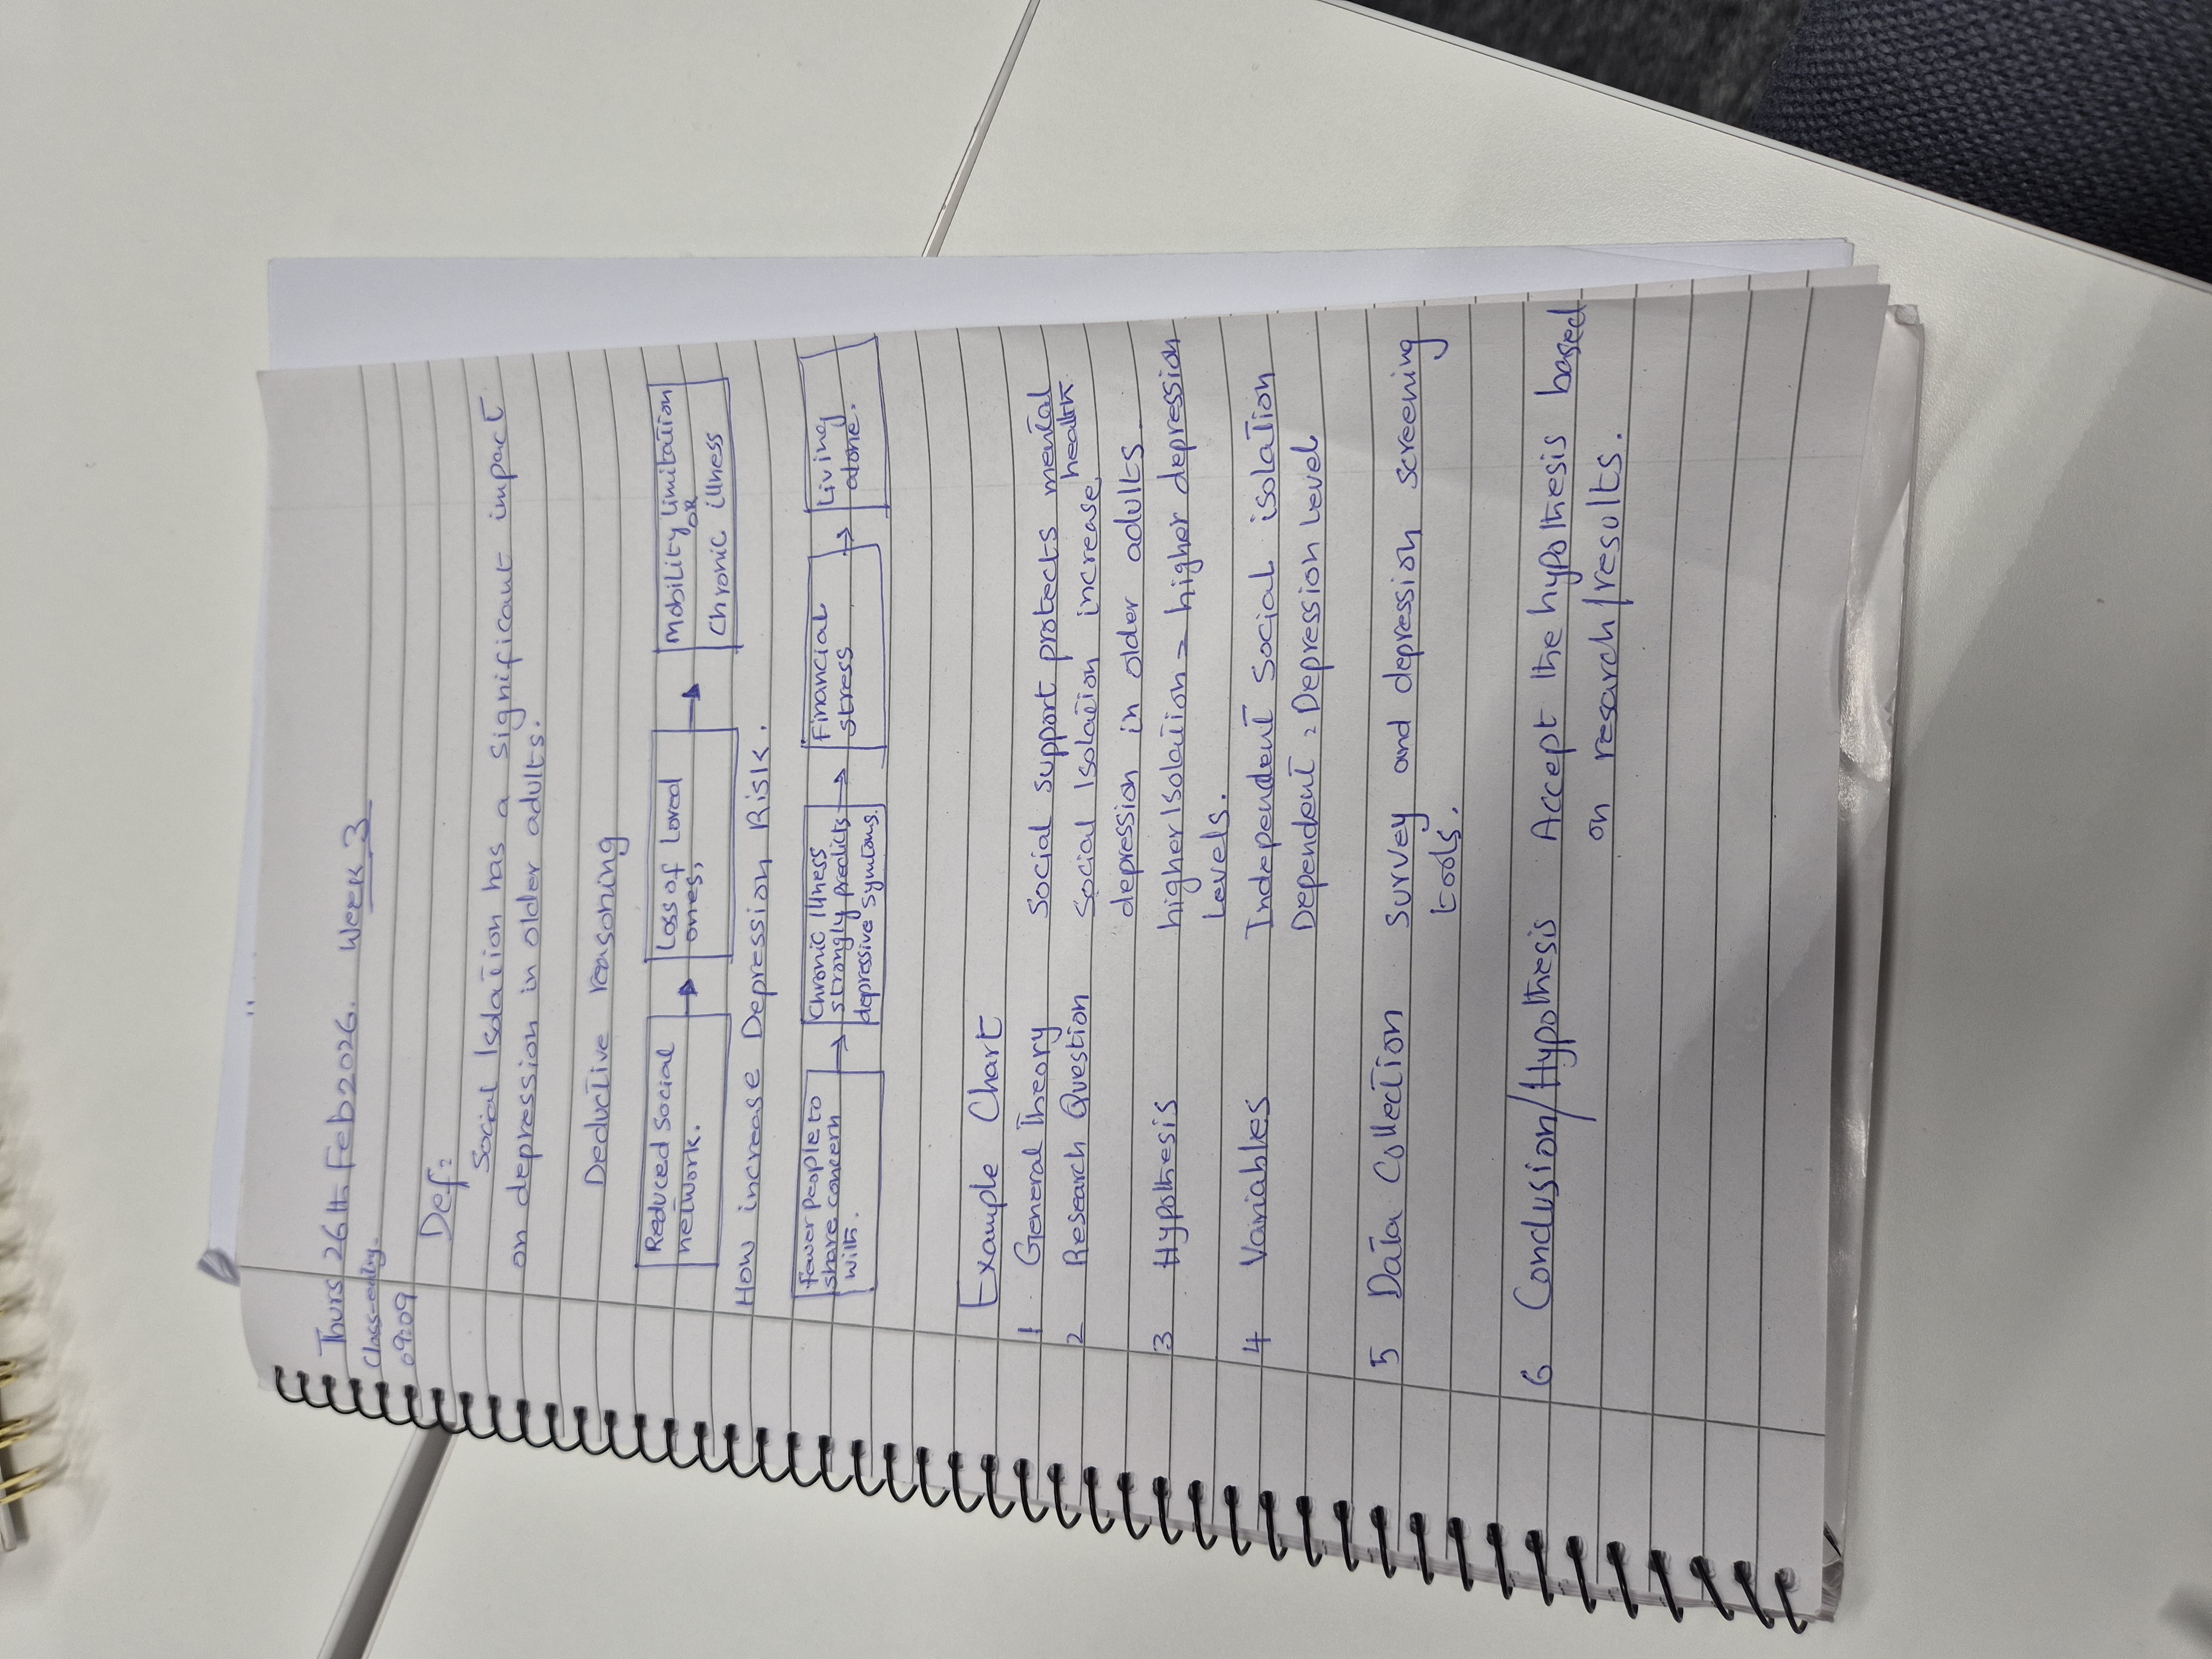 Thurs 26th Feb 2026. Week 3
Class-entry.
09:09
Def:
Social Isolation has a significant impact
on depression in older adults.
Deductive reasoning
Reduced social
network.
Loss of loved
ones,
Mobility limitation
OR
Chronic illness
How increase Depression Risk.
fewer people to
share concern
with.
Chronic illness
strongly predicts
depressive symtoms.
Financial
stress
Living
alone.
Example Chart
1 General Theory Social support protects mental
health
2 Research Question Social Isolation increase,
depression in older adults.
3 Hypothesis higher Isolation = higher depression
Levels.
4 Variables Independent Social isolation
Dependent: Depression Level
5 Data Collection Survey and depression screening
tools.
6 Conclusion/Hypothesis Accept the hypothesis based
on research/results.